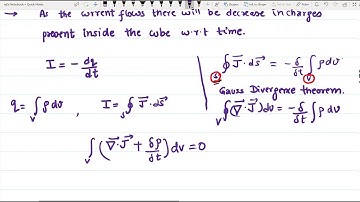 → As the current flows there will be decrease in charges
present Inside the cube w.r.t time.
I = - dq/dt
∮_S J⃗ · ds⃗ = - δ/δt ∫_V ρ dv
Gauss Divergence theorem.
q = ∫_V ρ dv , I = ∮_S J⃗ · ds⃗
∮_V (∇⃗ · J⃗) dv = - δ/δt ∫_V ρ dv
∫_V (∇⃗ · J⃗ + δρ/δt) dv = 0